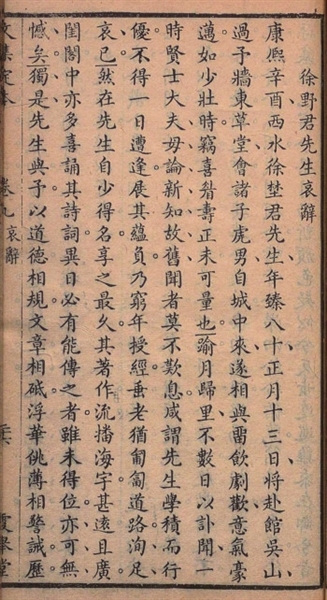 徐野君先生哀辭
康熈辛酉西水徐埜君先生年臻八十正月十三日將赴館吳山
過予牆東草堂會諸子虎男自城中來遂相與畱飲劇歡意氣豪
邁如少壯時竊喜耆壽正未可量也踰月歸里不數日以訃聞一
時賢士大夫毋論新知故舊聞者莫不歎息咸謂先生學積而行
優不得一日遭逢展其蘊負乃窮年授經垂老猶匍匐道路洵足
哀已然在先生自少得名享之最久其著作流播海宇甚遠且廣
閨閤中亦多喜誦其詩詞異日必有能傳之者雖未得位亦可無
憾矣獨是先生與予以道德相規文章相砥浮華佻薄相警誡歷
卷九哀辭
霞舉堂